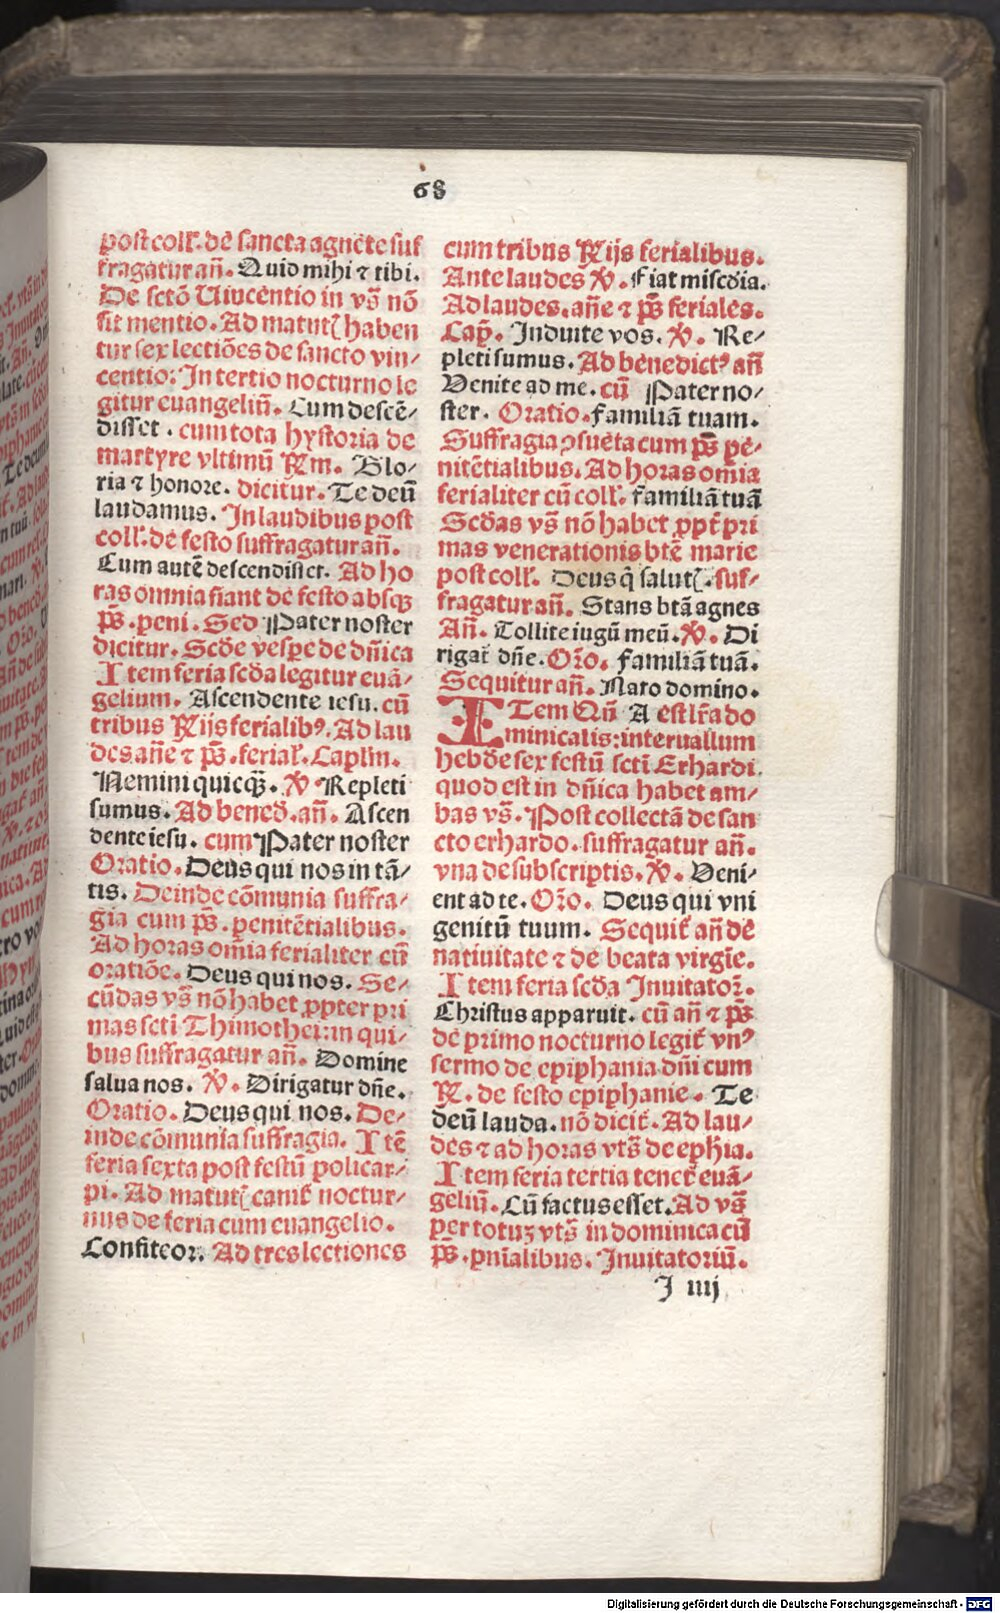 68
post coll'. de sancta agnete suf
fragatur añ. Quid mihi ⁊ tibi.
De sctō Uincentio in vs̄ nō
fit mentio. Ad matut̄ haben
tur sex lectiōes de sancto vin⸗
centio: In tertio nocturno le
gitur euangeliū. Cum descē⸗
disset. cum tota hystoria de
martyre vltimū Rm. Glo⸗
ria ⁊ honore. dicitur. Te deū
laudamus. In laudibus post
coll'. de festo suffragatur añ.
Cum autē descendisset. Ad ho
ras omnia fiant de festo absqꝫ
p̄s. peni. Sed Pater noster
dicitur. Scd̄e vespe de dn̄ica
Item feria scd̄a legitur euā⸗
gelium. Ascendente iesu. cū
tribus Rijs ferialibꝰ. Ad lau
des añe ⁊ p̄s. ferial'. Caplm.
Nemini quicqꝫ. V̄ Repleti
sumus. Ad bened̄. añ. Ascen
dente iesu. cum Pater noster
Oratio. Deus qui nos in tā⸗
tis. Deinde cōmunia suffra⸗
gia cum p̄s. penitētialibus.
Ad horas om̄ia ferialiter cū
oratiōe. Deus qui nos. Se⸗
cūdas vs̄ nō habet ꝓpter pri
mas scti Thimothei: in qui⸗
bus suffragatur añ. Domine
salua nos. V̄. Dirigatur dn̄e.
Oratio. Deus qui nos. De⸗
inde cōmunia suffragia. Itē
feria sexta post festū policar⸗
pi. Ad matut̄ canit̄ noctur⸗
nus de feria cum euangelio.
Confiteor. Ad tres lectiones
cum tribus Rijs ferialibus.
Ante laudes V̄. Fiat miscd̄ia.
Ad laudes. añe ⁊ p̄s feriales.
Cap̄. Induite vos. V̄. Re⸗
pleti sumus. Ad benedictꝰ añ
Venite ad me. cū Pater no⸗
ster. Oratio. Familiā tuam.
Suffragia ꝯsuēta cum p̄s pe⸗
nitētialibus. Ad horas om̄ia
ferialiter cū coll'. familiā tuā
Scd̄as vs̄ nō habet ꝓpt̄ pri
mas venerationis btē marie
post coll'. Deus q̄ salut̄. suf⸗
fragatur añ. Stans btā agnes
Añ. Tollite iugū meū. V̄. Di
rigat̄ dn̄e. Or̄o. Familiā tuā.
Sequitur añ. Nato domino.
ITem Qn̄ A est lr̄a do
minicalis: interuallum
hebd̄e sex festū scti Erhardi
quod est in dn̄ica habet am⸗
bas vs̄. Post collectā de san
cto erhardo. suffragatur añ.
vna de subscriptis. V̄. Veni⸗
ent ad te. Or̄o. Deus qui vni
genitū tuum. Sequit̄ añ de
natiuitate ⁊ de beata virgīe.
Item feria scd̄a Inuitator̄.
Christus apparuit. cū añ ⁊ p̄s
de primo nocturno legit̄ vnꝰ
sermo de epiphania dn̄i cum
R. de festo epiphanie. Te
deū lauda. nō dicit̄. Ad lau⸗
des ⁊ ad horas vts̄ de eph̄ia.
Item feria tertia tenet̄ euā⸗
geliū. Cū factus esset. Ad vs̄
per totuꝫ vts̄ in dominica cū
p̄s. pn̄ialibus. Inuitatoriū.
I iiij
Digitalisierung gefördert durch die Deutsche Forschungsgemeinschaft - DFG